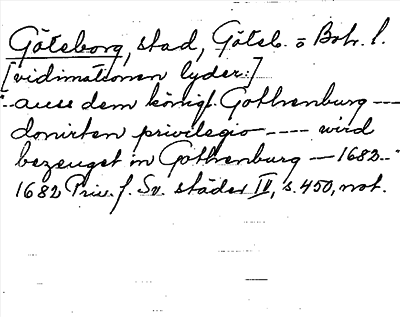 Göteborg, stad, Göteb. o Boh. l.
[vidimationen lyder:]
"-- ausz dem königl. Gothenburg ---
donirten privilegio ---- wird
bezeuget in Gothenburg — 1682.."
1682 Priv. f. Sv. städer IV, s. 450, not.